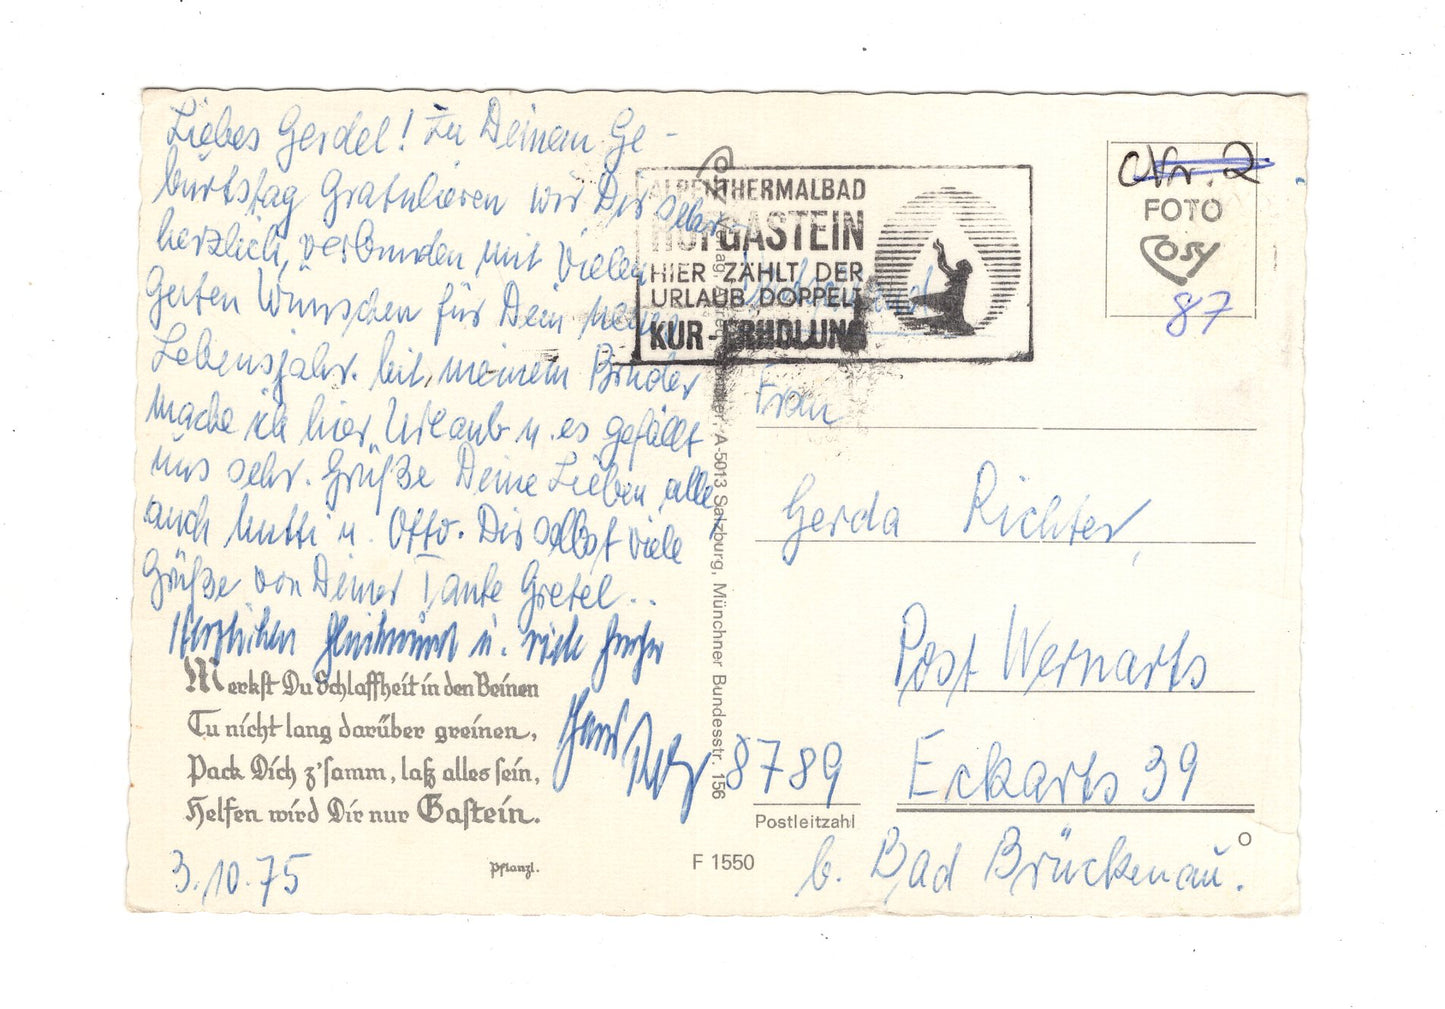 Liebes Gerdel! Zu Deinem Ge-
burtstag Gratulieren wir Dir sehr
herzlich, verbunden mit vielen
Guten Wünschen für Dein neues
Lebensjahr. Mit meinem Bruder
mache ich hier Urlaub u. es gefällt
uns sehr. Grüße Deine Lieben alle
auch Mutti u. Otto. Dir selbst viele
Grüße von Deiner Tante Gretel..
Herzlichen Glückwunsch u. viele Grüße
Hans
Merkst Du Schlaffheit in den Beinen
Tu nicht lang darüber greinen,
Pack Dich z'samm, laß alles sein,
Helfen wird Dir nur Gastein.
Pflanzl.
3.10.75
F 1550
A-5013 Salzburg, Münchner Bundesstr. 156
ALPENTHERMALBAD
HOFGASTEIN
HIER ZÄHLT DER
URLAUB DOPPELT
KUR-ERHOLUNG
Nr. 2
FOTO
Cosy
87
Frau
Gerda Richter,
Post Wernarts
8789 Eckarts 39
Postleitzahl
b. Bad Brückenau.